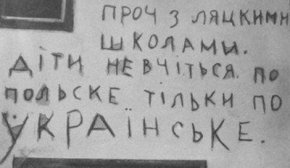 ПРОЧ З ЛЯЦКИМИ
ШКОЛАМИ.
ДІТИ НЕ ВЧІТЬСЯ ПО
ПОЛЬСКЕ ТІЛЬКИ ПО
УКРАЇНСЬКЕ.